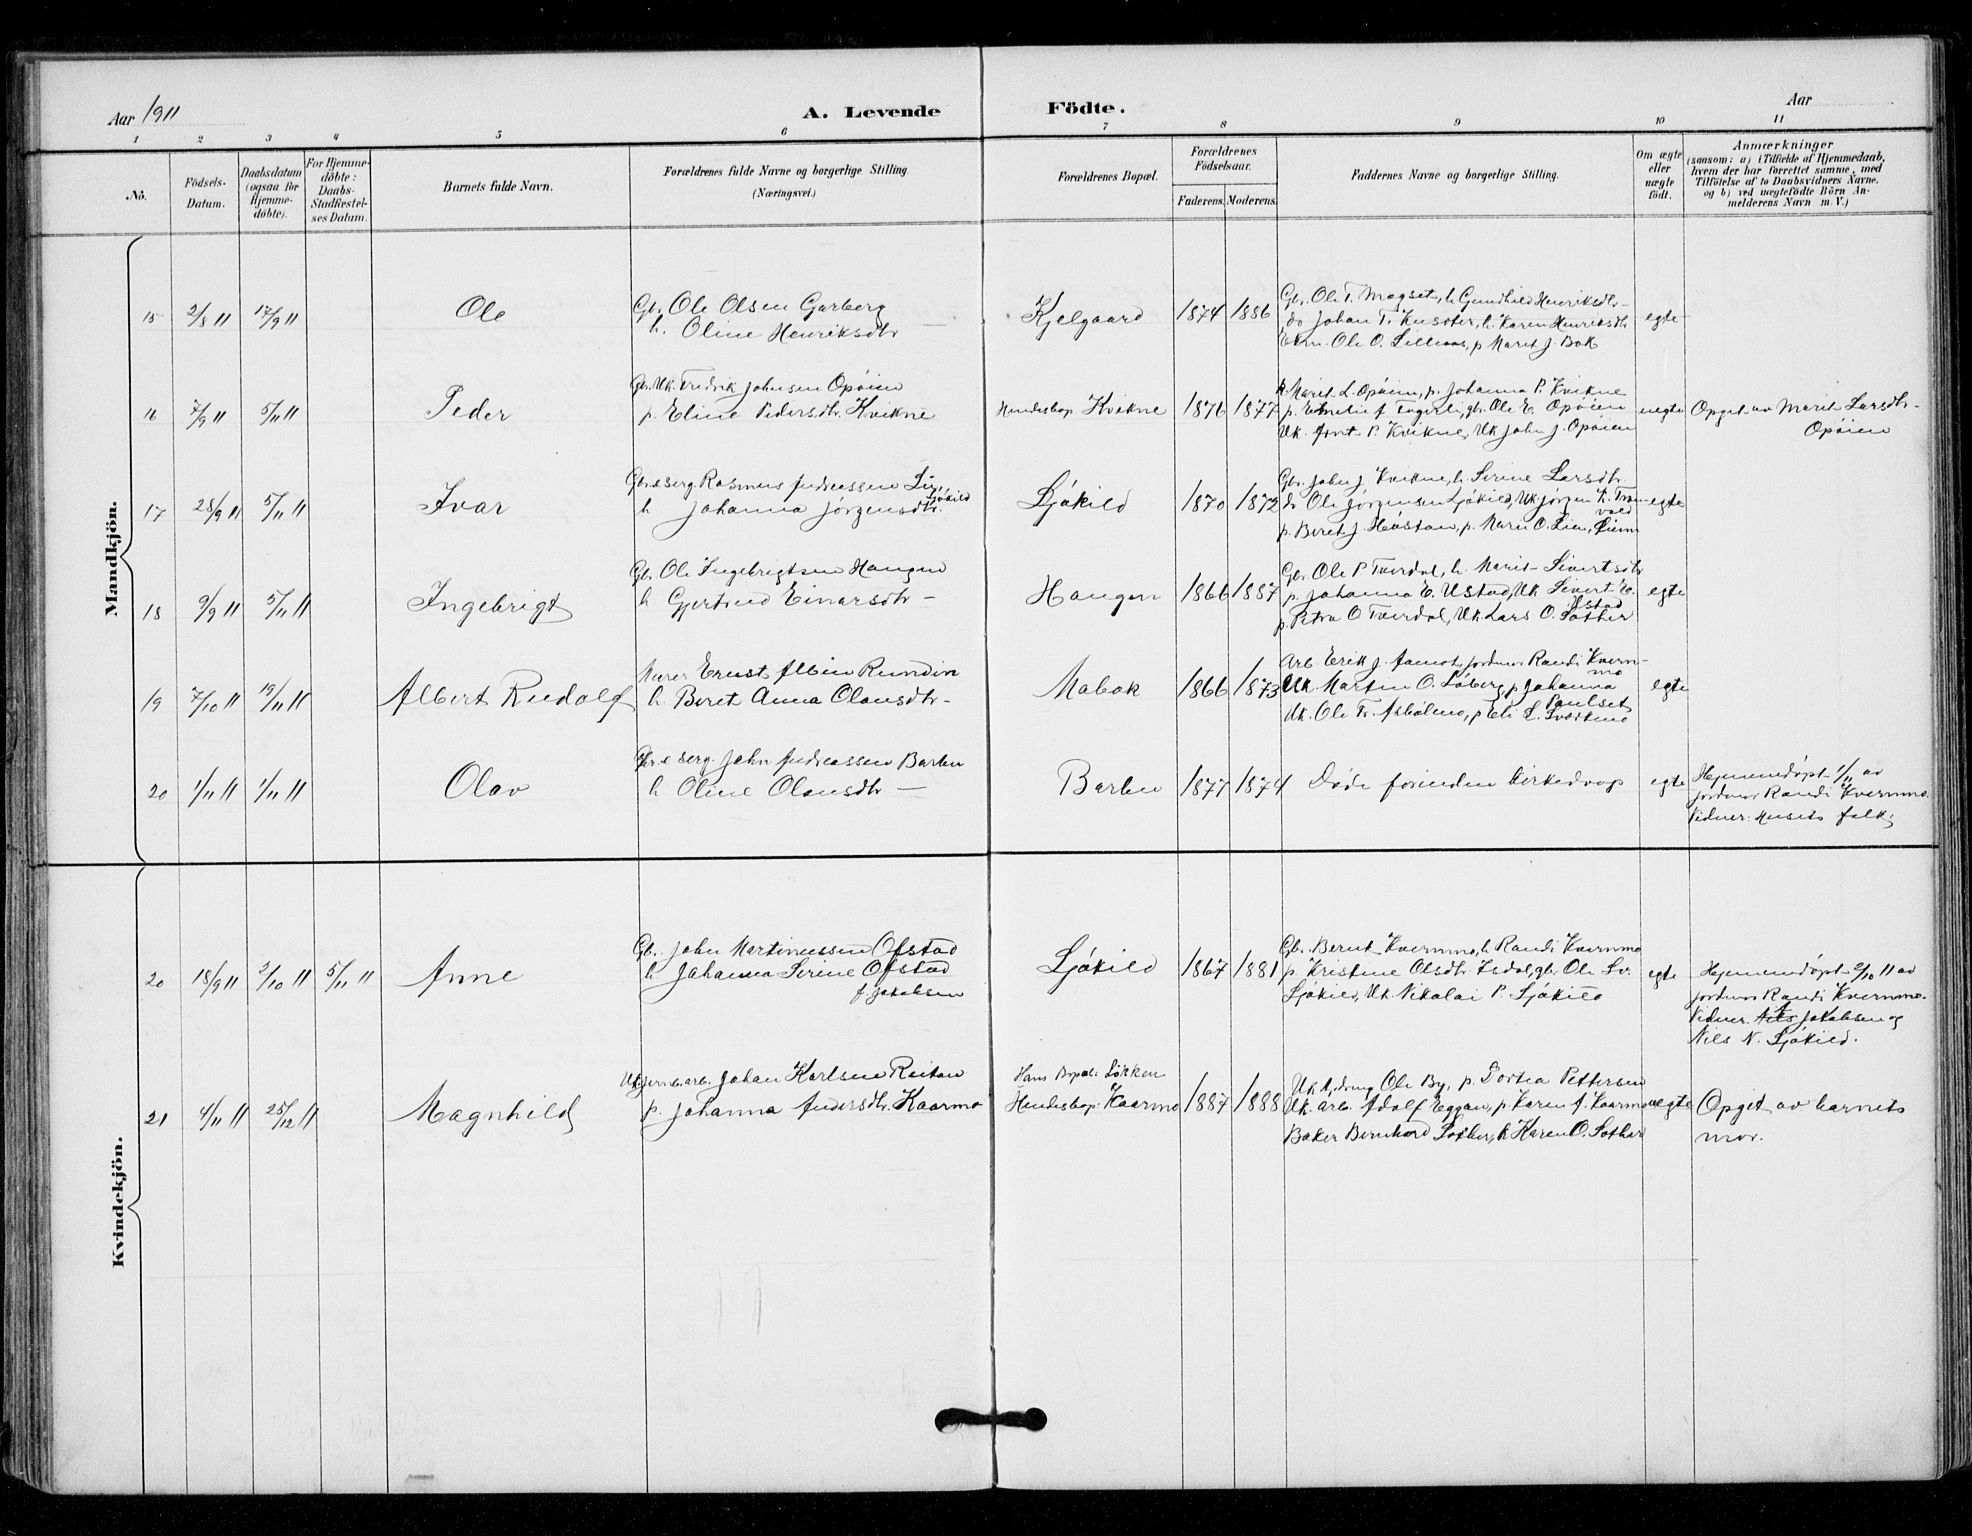 Aar 1911
A. Levende Födte.
Aar
1 2 3 4 5 6 7 8 9 10 11
No.
Födsels-Datum.
Daabsdatum (ogsaa for Hjemme-döbte).
For Hjemme-döbte: Daabs-Stadfæstel-ses Datum.
Barnets fulde Navn.
Forældrenes fulde Navne og borgerlige Stilling.
(Næringsvei.)
Forældrenes Bopæl.
Forældrenes Födselsaar.
Faderens. Moderens.
Faddernes Navne og borgerlige Stilling.
Om ægte eller uægte födt.
Anmærkninger
(saasom: a) i Tilfælde af Hjemmedaab,
hvem der har forrettet samme, med
Tilföielse af to Daabsvidners Navne.
og b) ved uegtefödte Börn An-
melderens Navn m. V.)
Mandkjön.
15 2/8 11 17/9 11 Ole
Gbr. Ole Olsen Garberg
h. Oline Henriksdtr
Kjelgaard 1874 1886
Gbr. Ole T. Mogset, h. Gundhild Henriksdtr
do Johan T. Knsoter, h. Karen Henriksdtr
Ole O. Lilleaas, p Marit J. Bak
egte
16 7/9 11 5/11 11 Peder
Gbr. Uk. Fredrik Johnsen Opøien
p. Eline Pedersdtr. Kvikne
Hendes bop. Kvikne 1876 1877
k. Marit L. Opøien, p. Johanna P. Kvikne
p. Emelie J. Fagerli, gbr. Ole E. Opøien
Uk. Arnt P. Kvikne, Uk John J. Opøien
uegte
Opget av Marit Larsdtr
Opøien
17 28/9 11 5/11 11 Ivar
Gbr. e serg. Rasmus Andreassen Lie,
Ljøkild
h Johanna Jørgensdtr.
Ljøkild 1870 1872
Gbr. John J. Kvikne, h. Serine Larsdtr.
do Ole Jørgensen Ljøkild, Uk Jørgen K. Tran-
vold
p. Beret J. Høistan, p. Maren O. Lien,
egte
18 9/9 11 5/11 11 Ingebrigt
Gbr. Ole Ingebrigtsen Haugen
h Gjertrud Einarsdtr
Haugen 1866 1887
Gbr. Ole P. Tverdal, h. Marit Sivertsdtr
p. Johanna E. Ustad, Uk Sivert E.
Ustad
p. Petra O. Tverdal, Uk. Lars O. Sother
egte
19 7/10 11 19/11 11 Albert Rudolf
Murer Ernst Albin Rundin
h Beret Anna Olausdtr
Mabak 1866 1873
Arb Erik J. Aamot, jordmor Randi Kvern-
mo
Uk. Martin O. Løberg, p Johanna
Paulset
Uk. Ole Tr. Asholmo, p Eli L. Svorkmo
egte
20 1/11 11 1/11 11 Olav
Gbr. e serg. John Andreassen Barlien
h Oline Olausdtr
Barlien 1877 1874
Døde forinden kirkedaap
egte
Hjemmedøpt 1/11 av
jordmor Randi Kvernmo.
Vidner: Husets folk.
Kvindekjön.
20 18/9 11 2/10 11 5/11 11 Anne
Gbr. John Martinussen Ofstad
h Johanna Serine Ofstad
f. Jakobsen
Ljøkild 1867 1881
Gbr. Bernt Kvernmo, h. Randi Kvernmo
p. Kristine Olsdtr. Isdal, gbr. Ole Sv.
Ljøkild, Uk. Nikolai P. Ljøkild
egte
Hjemmedøpt 2/10 11 av
jordmor Randi Kvernmo.
Vidner. Jakobsen og
Nils N. Ljøkild.
21 4/11 11 25/12 11 Magnhild
Uk. jernb. arb. Johan Karlsen Reitan
p. Johanna Andersdtr. Kaarmo
Hans Bopæl: Løkken
Hendes bop: Kaarmo 1887 1888
Uk Ole By, p. Dortea Pettersen
Uk. arb. Adolf Eggan, p Karen A. Kaarmo
Baker Bernhard Sother, h Karen O. Sother
uegte
Opget av barnets
mor.